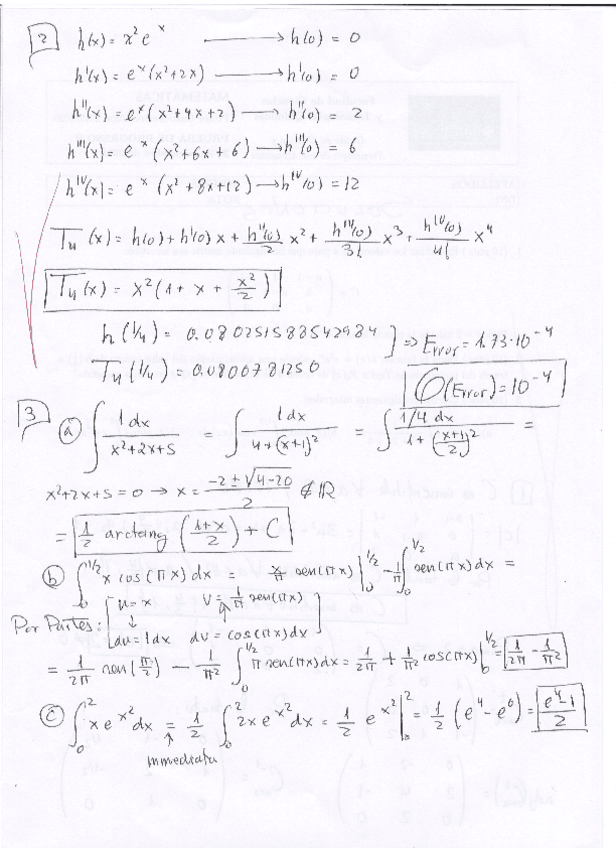 2 h(x) = x² eˣ ⟶ h(0) = 0
h'(x) = eˣ (x²+2x) ⟶ h'(0) = 0
h''(x) = eˣ (x²+4x+2) ⟶ h''(0) = 2
h'''(x) = eˣ (x²+6x+6) ⟶ h'''(0) = 6
h^IV(x) = eˣ (x²+8x+12) ⟶ h^IV(0) = 12
T₄(x) = h(0) + h'(0) x + h''(0)/2 x² + h'''(0)/3! x³ + h^IV(0)/4! x⁴
T₄(x) = x² (1 + x + x²/2)
h(1/4) = 0.080251588542984 ] ⇒ Error = 1.73·10⁻⁴
T₄(1/4) = 0.0800781250
O(Error) = 10⁻⁴
3 a) ∫ 1dx/(x²+2x+5) = ∫ 1dx/(4+(x+1)²) = ∫ (1/4 dx)/(1+((x+1)/2)²) =
x²+2x+5 = 0 → x = (-2±√(4-20))/2 ∉ ℝ
= 1/2 arctang ((1+x)/2) + C
b) ∫₀^(1/2) x cos(πx) dx = x/π sen(πx) |₀^(1/2) - 1/π ∫₀^(1/2) sen(πx) dx =
Por Partes: [ u = x v = 1/π sen(πx)
du = 1dx dv = cos(πx) dx ]
= 1/2π sen(π/2) - 1/π² ∫₀^(1/2) π sen(πx) dx = 1/2π + 1/π² cos(πx) |₀^(1/2) = 1/2π - 1/π²
c) ∫₀² x e^(x²) dx = 1/2 ∫₀² 2x e^(x²) dx = 1/2 e^(x²) |₀² = 1/2 (e⁴ - e⁰) = (e⁴-1)/2
immediata